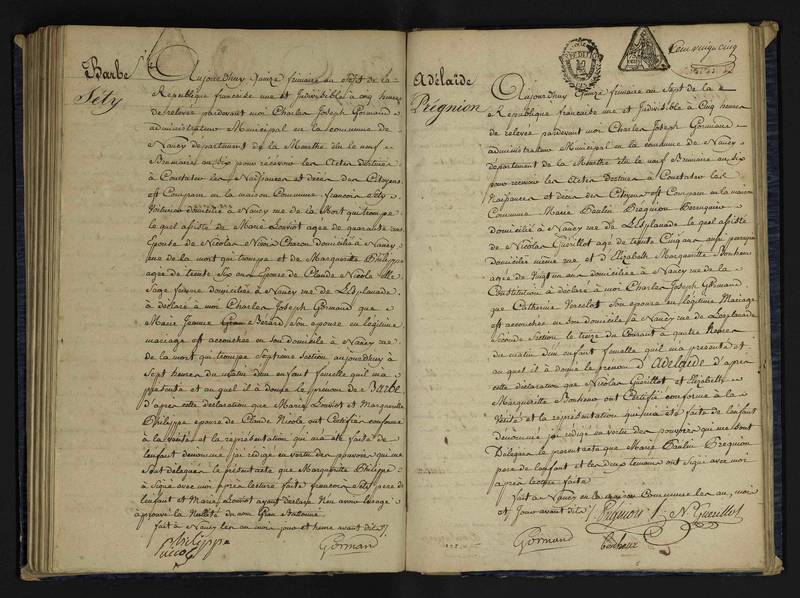 Barbe
Sety
Aujourdhuy Quinze frimaire au Sept de la
Republique francaise une et Indivisible a cinq heures
de relevée pardevant moi Charles Joseph Gormand
administrateur Municipal en la commune de
Nancy departement de la Meurthe élu le neuf
Brumaire an six pour recevoir les Actes destinés
à Constater les Naissances et décès des Citoyens
est Comparu en la maison Commune francois Sety
Voiturier domicilié à Nancy rue de la Mort qui trompe
le quel assisté de Marie Louviot agée de quarante
Epouse de Nicolas domicilié à Nancy
rue de la mort qui trompe et de Marguerite Philippe
agée de trente Six ans Epouse de Claude Nicole
Sage femme domiciliée à Nancy rue de L'Esplanade
à déclaré à moi Charles Joseph Gormand que
Marie Jeanne Bérard Son epouse en legitime
mariage est accouchée en son domicile à Nancy rue
de la mort qui trompe Septieme Section aujourdhuy à
Sept heures du matin d'un enfant femelle quil m'a
présenté et auquel il à donné le prenom de Barbe
d'après cette déclaration que Marie Louviot et Marguerite
Philippe epouse de Claude Nicole ont Certifiée conforme
à la verité et la représentation qui m'a été faite de
lenfant dénommé j'ai redigé en vertu des pouvoirs qui me
Sont delegués le présent acte que Marguerite Philippe
à Signé avec moi après lecture faite francois Sety pere de
lenfant et Marie Louviot ayant declaré Nen avoir l'usage
approuvé la Nullité de
fait à Nancy les an mois jour et heure avant dits
Philippe
Gormand
Adélaïde
Prégnion
Cent vingt cinq
Aujourdhuy Quinze frimaire an Sept de la
Republique francaise une et Indivisible à Cinq heures
de relevée pardevant moi Charles Joseph Gormand
administrateur Municipal en la commune de Nancy
departement de la Meurthe élu le neuf Brumaire an six
pour recevoir les Actes Destinés à Constater les
Naissances et décès des Citoyens est Comparu en la maison
Commune Marie Paulin Preqnion Perruquier
domicilié à Nancy rue de L'Esplanade le quel assisté
de Nicolas Guérillot agé de trente Cinq ans aussi perruquier
domicilié même rue et d'Elizabeth Marguerite Bonheur
agée de Vingt un ans domiciliée à Nancy rue de la
Constitution à déclaré à moi Charles Joseph Gormand
que Catherine Son epouse en légitime Mariage
est accouchée en son domicile à Nancy rue de Lesplanade
Seconde Section le treize du Courant à quatre heures
du matin d'un enfant femelle quil m'a présenté et
au quel il à donné le prenom d'Adelaïde d'après
cette déclaration que Nicolas Guérillot et Elizabeth
Marguerite Bonheur ont Certifié conforme à la
Verité et la représentation qui m'a été faite de lenfant
dénommé j'ai redigé en vertu des pouvoirs qui me sont
Delegués le present acte que Marie Paulin Preqnion
pere de lenfant et les deux témoins ont Signé avec moi
après lecture faite
fait à Nancy en la maison Commune les an mois
et jour avant dits Prignion N. Guerillot
Gormand
bonheur